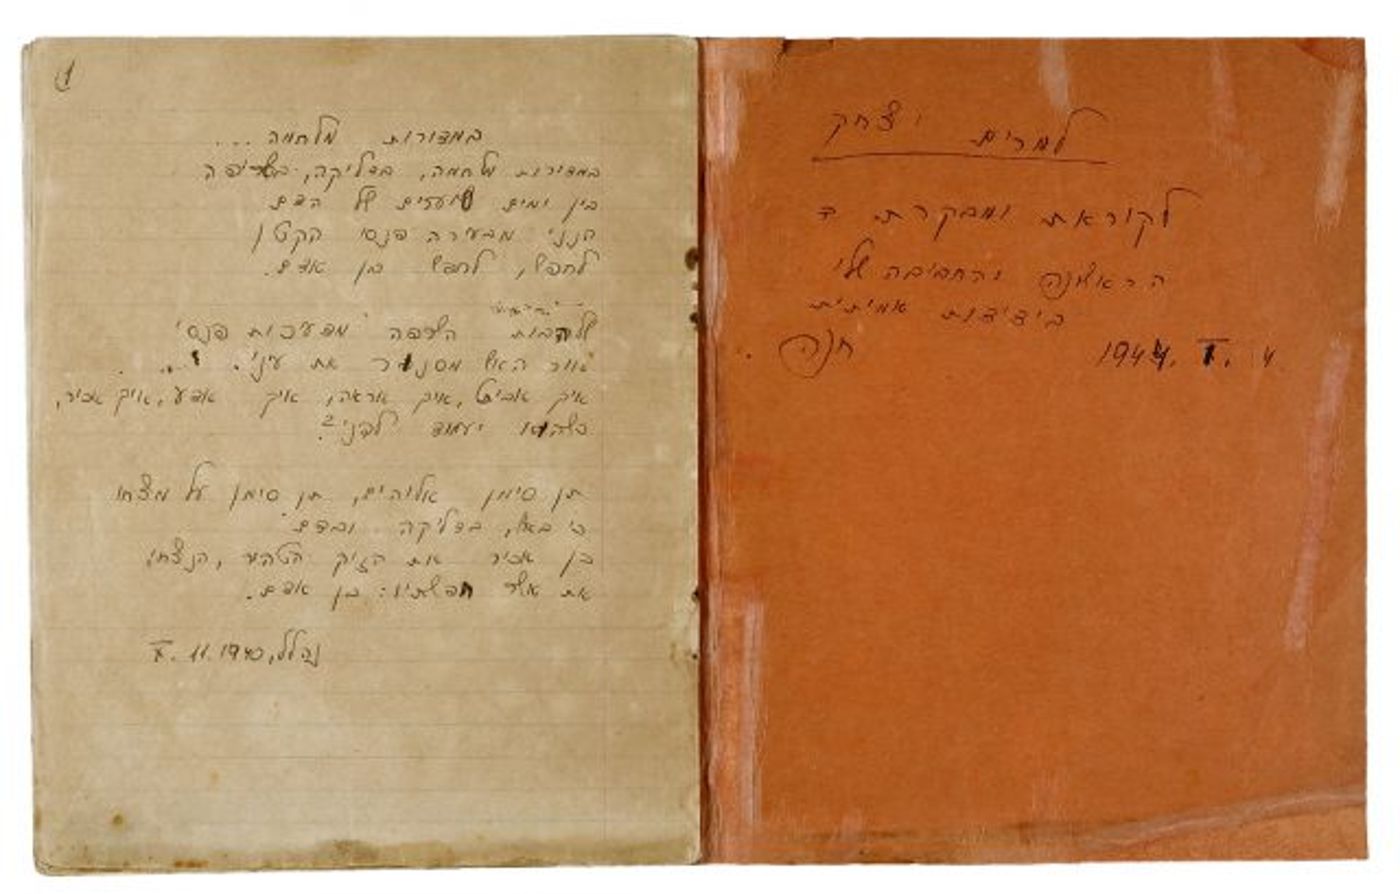 למרים יצחק
לקוראת ומבקרת ה
הראשונה והחביבה שלי
בידידות אמיתית
1944. I. 4 חנה.
1
במדורות מלחמה ...
במדורות מלחמה, בדליקה, בשריפה
בין ימים סוערים של הדם
הנני מבעירה פנסי הקטן
לחפש, לחפש בן אדם.
שלהבות השרפה מדעיכות פנסי
אור האש מסנור את עיני. ..
איך אביט, איך אראה, איך אדע, איך אכיר,
כשהוא יעמוד לפני?
תן סימן אלוהים, תן סימן על מצחו
כי באש, בדליקה ובדם
כן אכיר את הזיק הטהור, הנצחי,
את אשר חפשתיו: בן אדם.
נהלל, 1940. 11. X